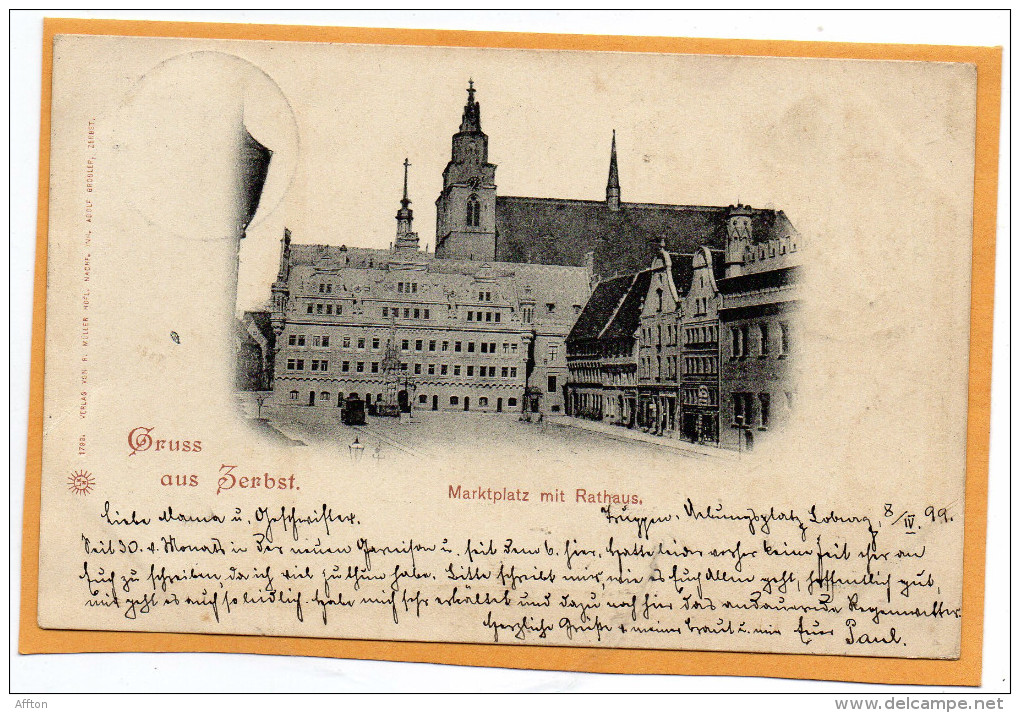 1793. VERLAG VON R. MÜLLER HOFL. NACHF. INH. ADOLF GRÖBLER, ZERBST.
Gruss
aus Zerbst.
Marktplatz mit Rathaus.
Truppen-Uebungsplatz Loburg, 8/IV. 99.
Liebe Mama u. Geschwister.
Seit 30. v. Monats in der neuen Garnison u. seit dem 6. hier. Hatte leider vorher keine Zeit eher an
Euch zu schreiben, da ich viel zu thun habe. Bitte schreibt mir wie es Euch Allen geht, hoffentlich gut,
mir geht es auch so leidlich. Habe mich sehr erkältet und dazu noch hier das andauernde Regenwetter.
Herzliche Grüße v. meiner Braut u. mir Euer Paul.
Affton
delcampe.net